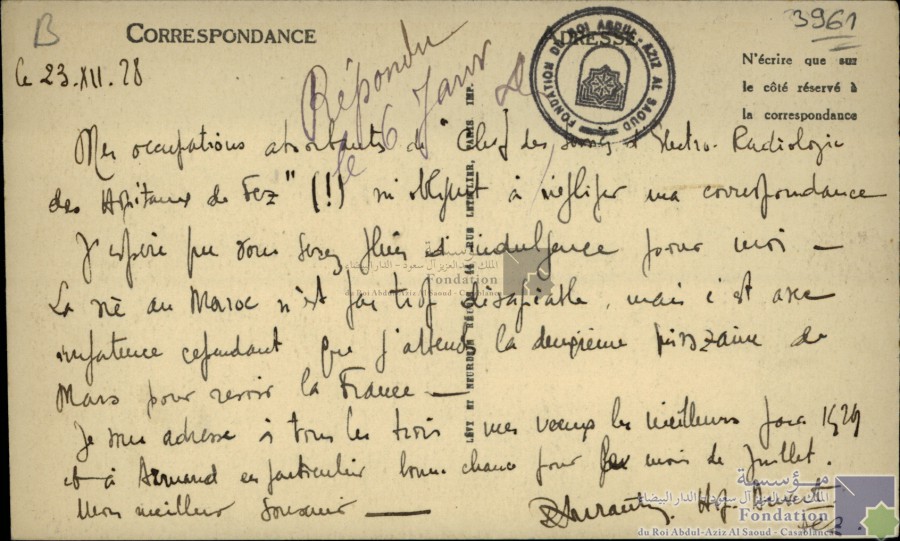 B
3961
CORRESPONDANCE
ADRESSE
N'écrire que sur
le côté réservé à
la correspondance
FONDATION DU ROI ABDUL-AZIZ AL SAOUD
Le 23.XII.28
Répondu
le 6 Janv
Mes occupations absorbantes de "Chef des d'électro-Radiologie
des Hôpitaux de Fez" (!!) m'obligent à négliger ma correspondance
J'espère que vous serez plein d'indulgence pour moi —
La vie au Maroc n'est pas trop désagréable, mais c'est avec
impatience cependant que j'attends la deuxième quinzaine de
Mars pour revoir la France —
Je vous adresse à tous les trois mes voeux les meilleurs pour 1929
et à Armand en particulier bonne chance pour mois de Juillet.
Mon meilleur souvenir —
LÉVY ET NEURDEIN RÉUNIS, 44, RUE LETELLIER, PARIS IMP.
مؤسسة
الملك عبد العزيز آل سعود - الدار البيضاء
Fondation
du Roi Abdul-Aziz Al Saoud - Casablanca
مؤسسة
الملك عبد العزيز آل سعود - الدار البيضاء
Fondation
du Roi Abdul-Aziz Al Saoud - Casablanca